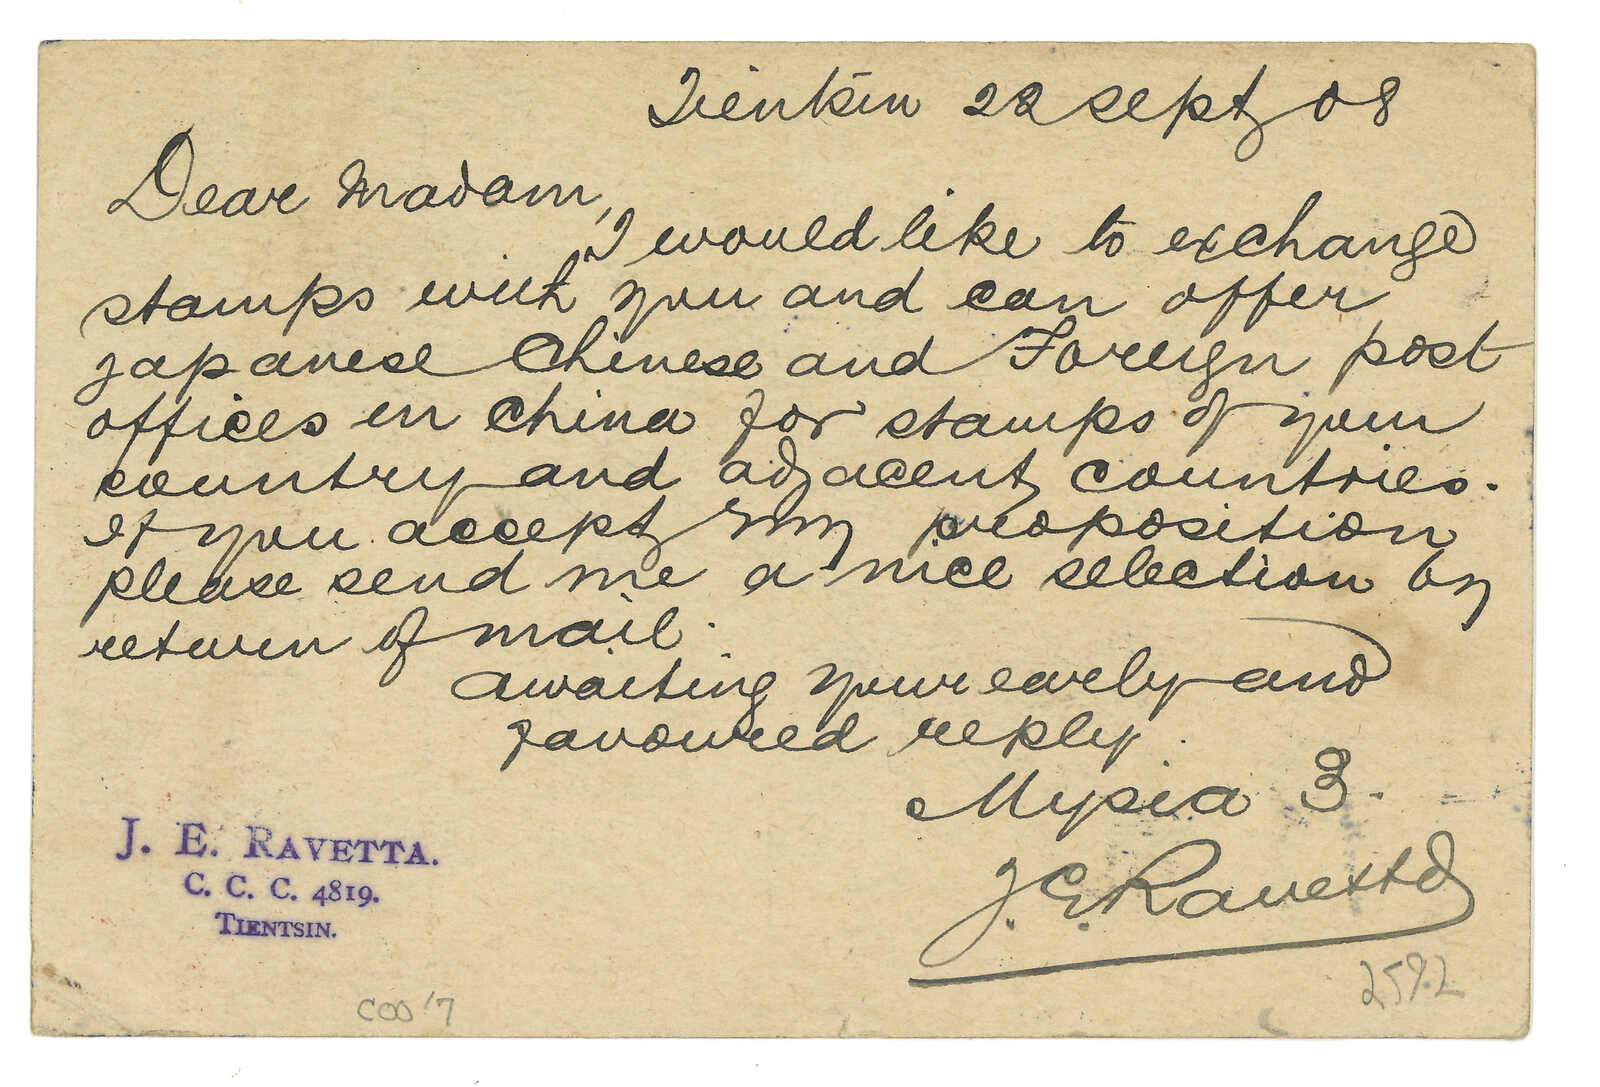 Tientsin 22 sept 08
Dear Madam,
I would like to exchange
stamps with you and can offer
japanese Chinese and Foreign post
offices in China for stamps of your
country and adjacent countries.
If you accept my proposition
please send me a nice selection by
return of mail.
awaiting your early and
favoured reply.
Mysia 3.
J. E. Ravetta
J. E. RAVETTA.
C. C. C. 4819.
TIENTSIN.
COO '7